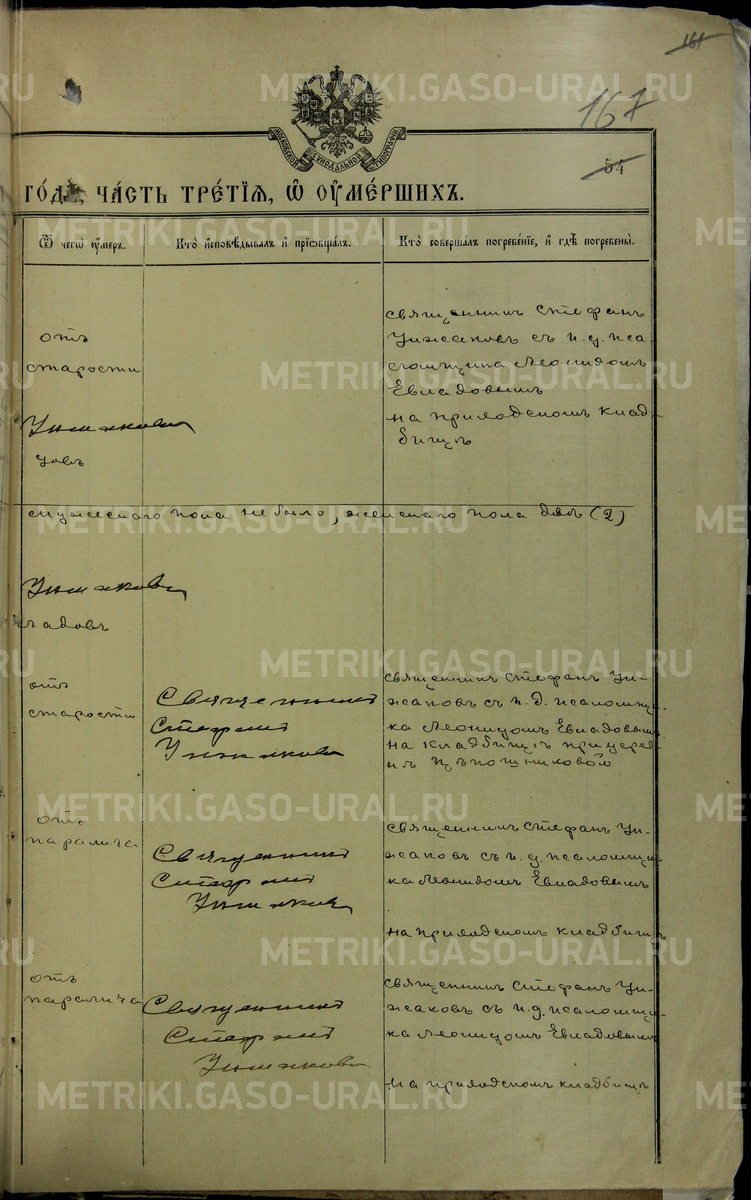 161
167
54
МОСКОВСКОЙ СѴНОДАЛЬНОЙ ТИПОГРАФІИ
ГО́ДЪ, ЧА́СТЬ ТРЕ́ТІѦ, Ѽ ОУ҆МЕ́РШИХЪ.
Ѿ чегѡ̀ оу҆́меръ.
Кто̀ и҆сповѣ́дывалъ и҆ прїѡбща́лъ.
Кто̀ соверша́лъ погребе́нїе, и҆ гдѣ̀ погребены̀.
отъ
старости
священникъ Стефанъ
Унжаковъ съ и. д. пса-
ломщика Леонидомъ
Евладовымъ
на приходскомъ клад-
бищѣ
Унжаковъ
довъ
мужескаго пола не было, женскаго пола двѣ (2)
Унжаковъ
ладовъ
отъ
старости
Священникъ
Стефанъ
Унжаковъ
священникъ Стефанъ Ун-
жаковъ съ и. д. псаломщи-
ка Леонидомъ Евладовымъ
на кладбищѣ при церкв
отъ
паралича
Священникъ
Стефанъ
Унжаковъ
священникъ Стефанъ Ун-
жаковъ съ и. д. псаломщи-
ка Леонидомъ Евладовымъ
на приходскомъ кладбищѣ
отъ
паралича
Священникъ
Стефанъ
Унжаковъ
священникъ Стефанъ Ун-
жаковъ съ и. д. псаломщи-
ка Леонидомъ Евладовымъ
на приходскомъ кладбищѣ
METRIKI.GASO-URAL.RU